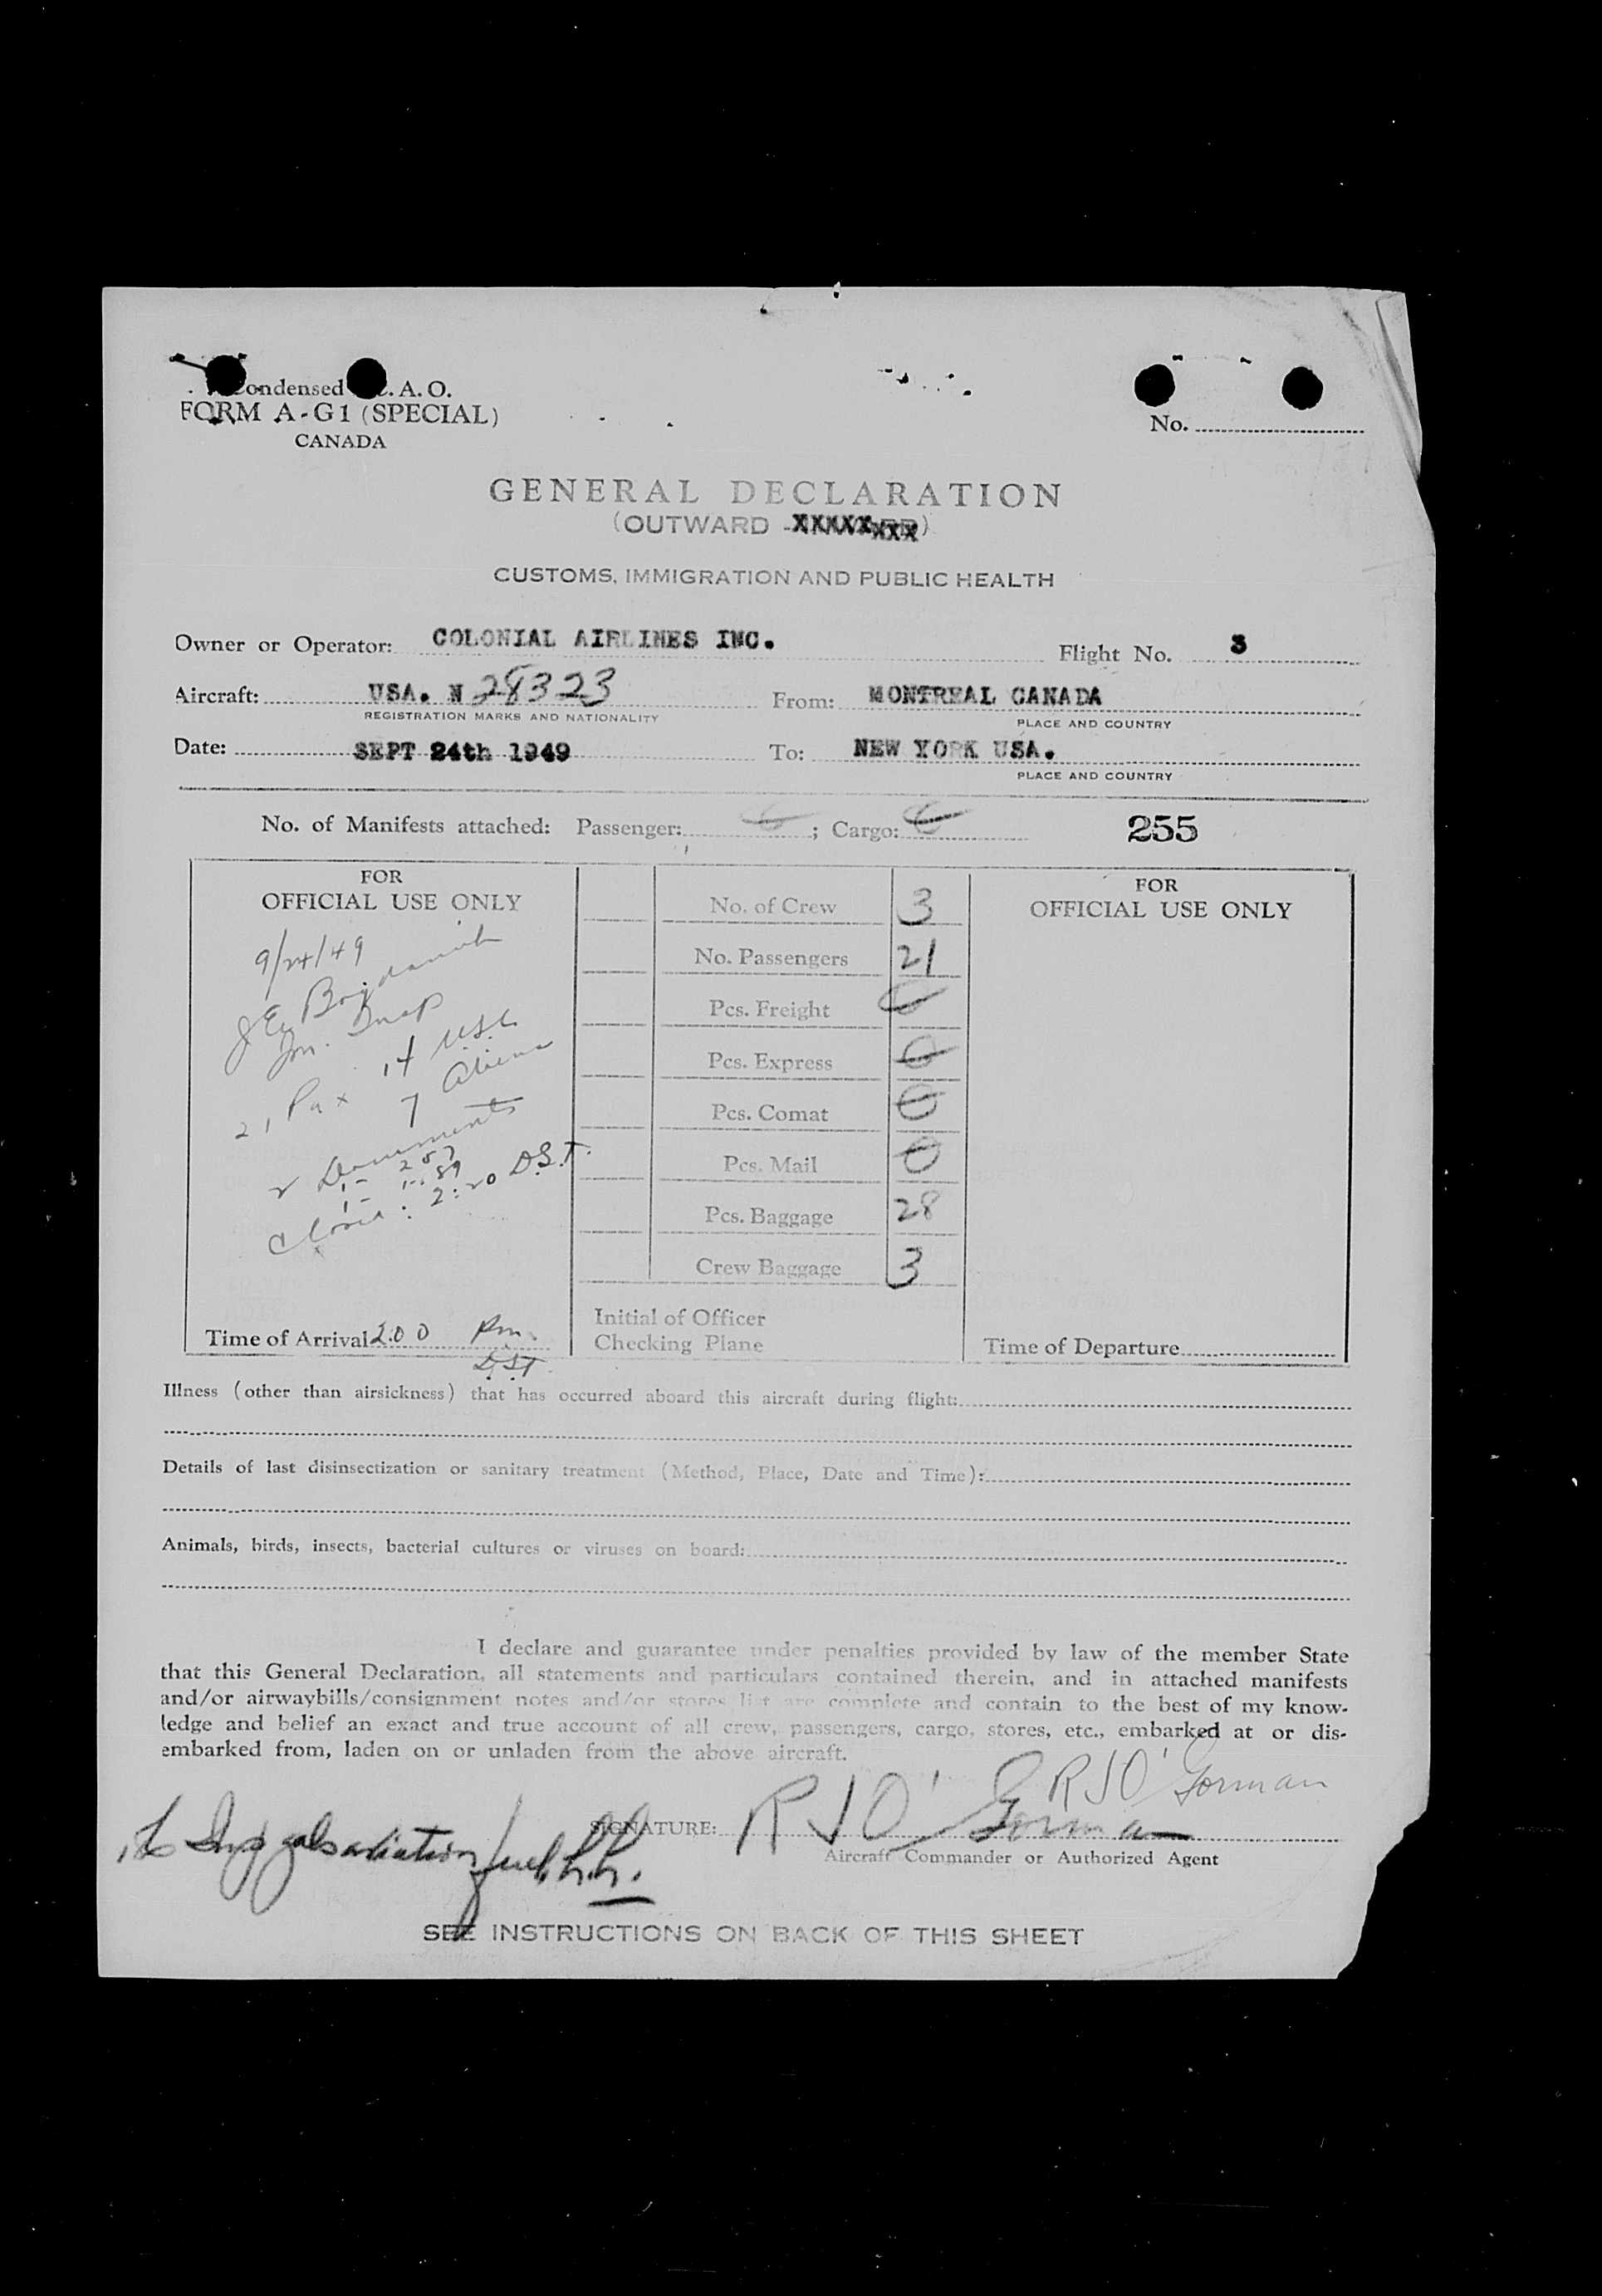 Condensed I.C.A.O.
FORM A-G1 (SPECIAL)
CANADA
No.
GENERAL DECLARATION
(OUTWARD - XXXXXXXX)
CUSTOMS, IMMIGRATION AND PUBLIC HEALTH
Owner or Operator: COLONIAL AIRLINES INC. Flight No. 3
Aircraft: USA. N 28323 From: MONTREAL CANADA
REGISTRATION MARKS AND NATIONALITY PLACE AND COUNTRY
Date: SEPT 24th 1949 To: NEW YORK USA.
PLACE AND COUNTRY
No. of Manifests attached: Passenger: ; Cargo: 255
FOR
OFFICIAL USE ONLY
9/24/49
J E
Im. Insp
21 Pax 14 USC
7 Aliens
2 Documents
1 - 257
1 - I-.89
Closed: 2:20 D.S.T.
Time of Arrival 2:00 Pm.
D.S.T.
No. of Crew 3
No. Passengers 21
Pcs. Freight 0
Pcs. Express 0
Pcs. Comat 0
Pcs. Mail 0
Pcs. Baggage 28
Crew Baggage 3
Initial of Officer
Checking Plane
FOR
OFFICIAL USE ONLY
Time of Departure
Illness (other than airsickness) that has occurred aboard this aircraft during flight:
Details of last disinsectization or sanitary treatment (Method, Place, Date and Time):
Animals, birds, insects, bacterial cultures or viruses on board:
I declare and guarantee under penalties provided by law of the member State
that this General Declaration, all statements and particulars contained therein, and in attached manifests
and/or airwaybills/consignment notes and/or stores list are complete and contain to the best of my know-
ledge and belief an exact and true account of all crew, passengers, cargo, stores, etc., embarked at or dis-
embarked from, laden on or unladen from the above aircraft.
R J O'Gorman
SIGNATURE: R J O'Gorman
Aircraft Commander or Authorized Agent
gals aviation fuel
SEE INSTRUCTIONS ON BACK OF THIS SHEET